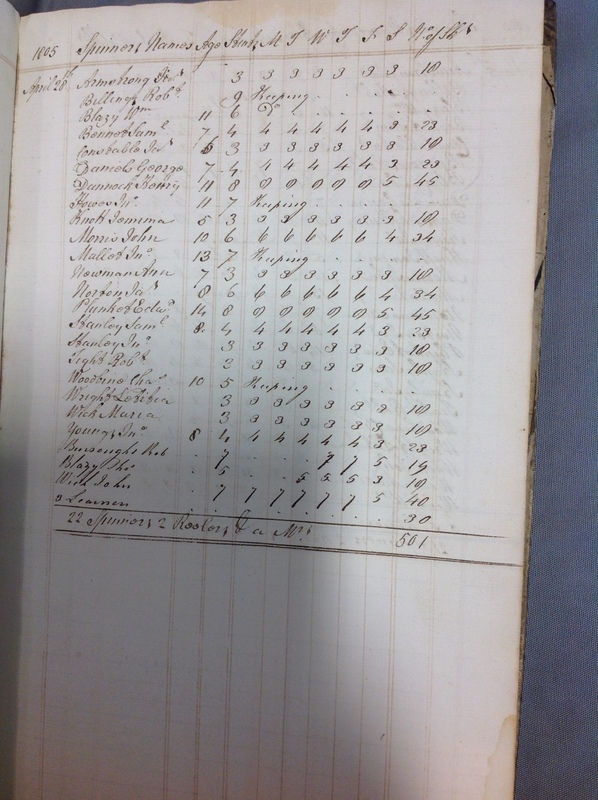 1805 Spinners Names Age Stint M T W T F S No of Sks
April 28 Armstrong Jas . 3 3 3 3 3 3 3 18
Billing Robt . 9 Keeping . . . .
Blazy Wm 11 6 Do . . . . .
Bennet Saml 7 4 4 4 4 4 4 3 23
Constable Jas 6 3 3 3 3 3 3 3 18
Daniels George 7 4 4 4 4 4 4 3 23
Dannock Henry 11 8 8 8 8 8 8 5 45
Howes Jno 11 7 Keeping . . . .
Knott Jemima 5 3 3 3 3 3 3 3 18
Morris John 10 6 6 6 6 6 6 4 34
Mallet Jno 13 7 Keeping . . . .
Newman Ann 7 3 3 3 3 3 3 3 18
Norton Jas 8 6 6 6 6 6 6 4 34
Plunket Edwd 14 8 8 8 8 8 8 5 45
Stanley Saml 8 4 4 4 4 4 4 3 23
Stanley Jno 3 3 3 3 3 3 3 18
Tight Robt 3 3 3 3 3 3 3 18
Woodbine Chas 10 5 Keeping . . . .
Wright Letitia 3 3 3 3 3 3 3 18
Wick Maria 3 3 3 3 3 3 3 18
Young Jno 8 4 4 4 4 4 4 3 23
Burroughs Rob . 7 . . . 7 7 5 19
Blazy . 5 . . 5 5 5 3 18
Wick John . 7 7 7 7 7 7 5 40
3 Learners . . . . . . 30
22 Spinners 2 Reelers & a Mrs 501